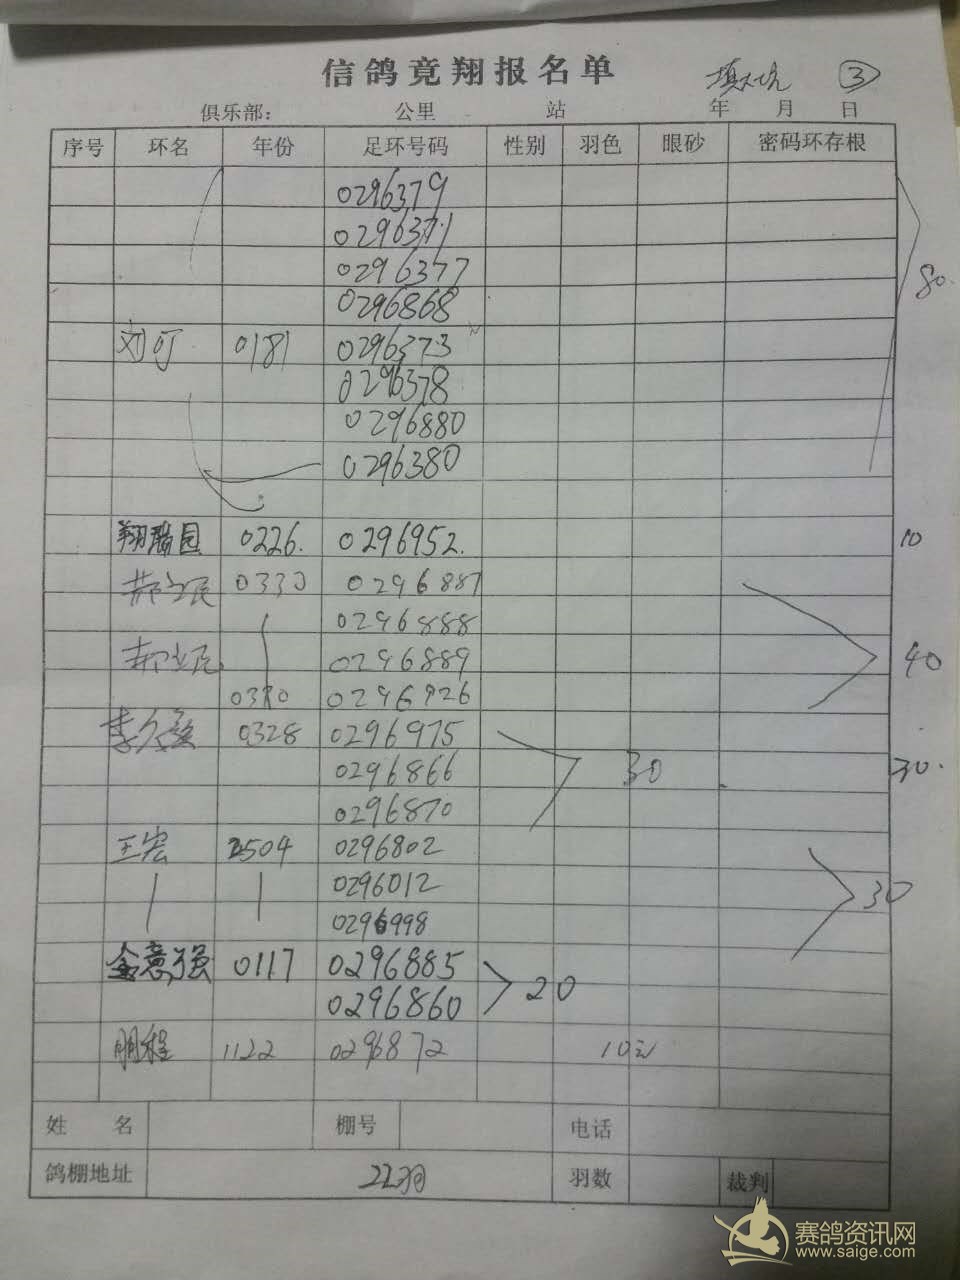 信鸽竟翔报名单
③
俱乐部： 公里 站 年 月 日
序号 环名 年份 足环号码 性别 羽色 眼砂 密码环存根
0296379
0296371
0296377
0296868
80.
刘可 0181 0296373
0296378
0296880
0296380
翔瑞园 0226. 0296952. 10
0330 0296887
0296888
0296889 40
0330 0296926
0328 0296975
0296866 30 30.
0296870
王宏 2504 0296802
0296012 30
0296998
金意强 0117 0296885
0296860 20
鹏程 1122 0296872 10元
姓 名 棚号 电话
鸽棚地址 22羽 羽数 裁判
赛鸽资讯网
www.saige.com